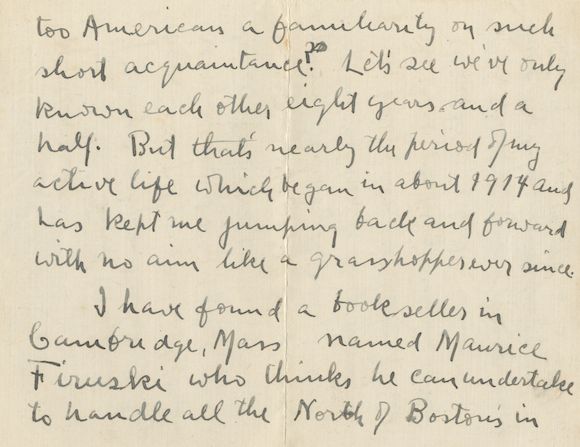 too American a familiarity on such
short acquaintance? Let's see we've only
known each other eight years and a
half. But that's nearly the period of my
active life which began in about 1914 and
has kept me jumping back and forward
with no aim like a grasshopper ever since.
I have found a bookseller in
Cambridge, Mass named Maurice
Firuski who thinks he can undertake
to handle all the North of Boston's in